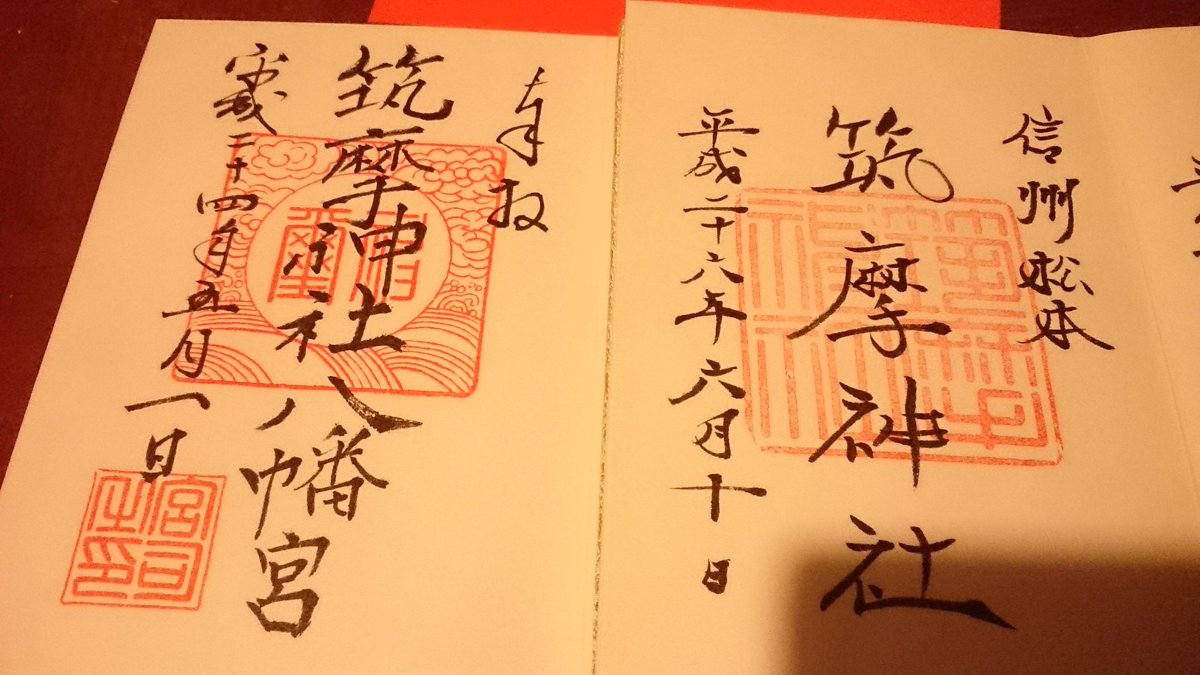 信州松本
筑摩神社
平成二十六年六月十日
奉拝
筑摩神社
八幡宮
平成二十四年五月一日
宮司之印